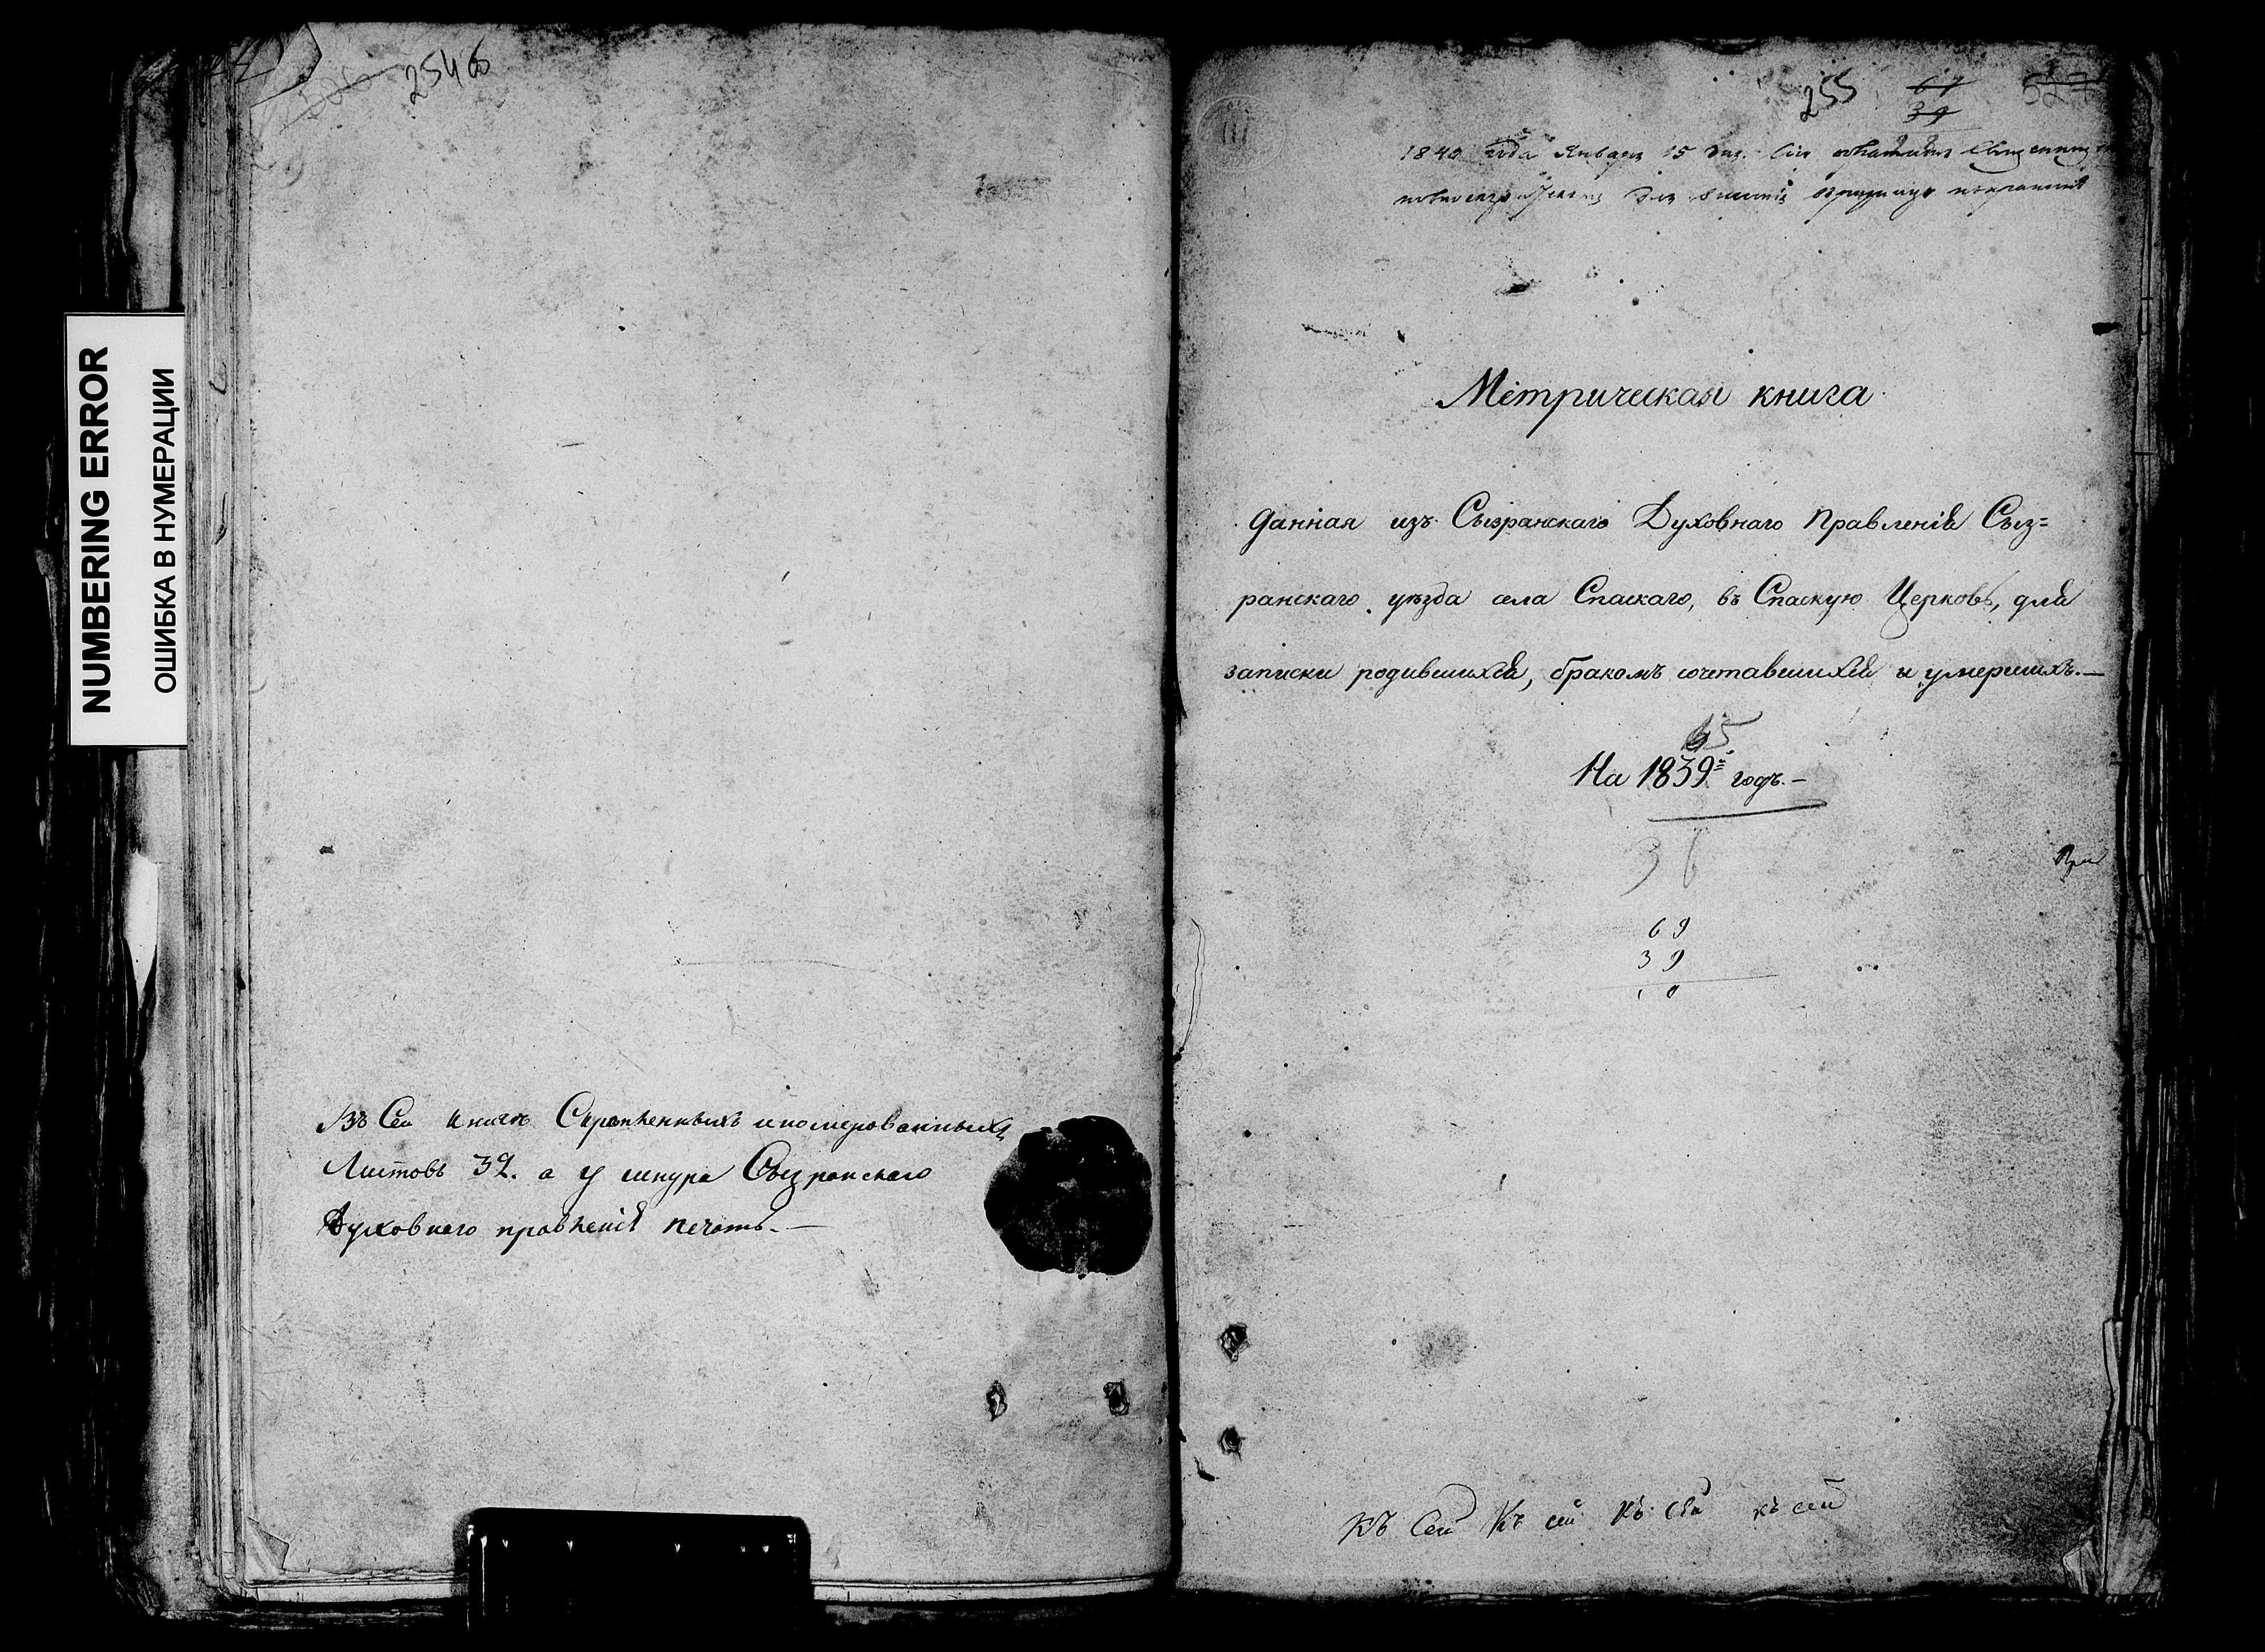 NUMBERING ERROR
ОШИБКА В НУМЕРАЦИИ
254 об
Въ Сей книгѣ Скрѣпленныхъ и номерованныхъ
Листовъ 32. а у шнура Сызранскаго
Духовнаго правленія печать.—
255
67
39
527
1840 года Января 15 дня. Сія
для
Метрическая книга
данная изъ Сызранскаго Духовнаго Правленія Сыз=
ранскаго уѣзда села Спаскаго, въ Спаскую Церковь, для
записки родившихся, бракомъ сочетавшихся и умершихъ.—
65
На 1839й годъ.—
36
При
69
39
къ сей къ сей къ сей къ сей